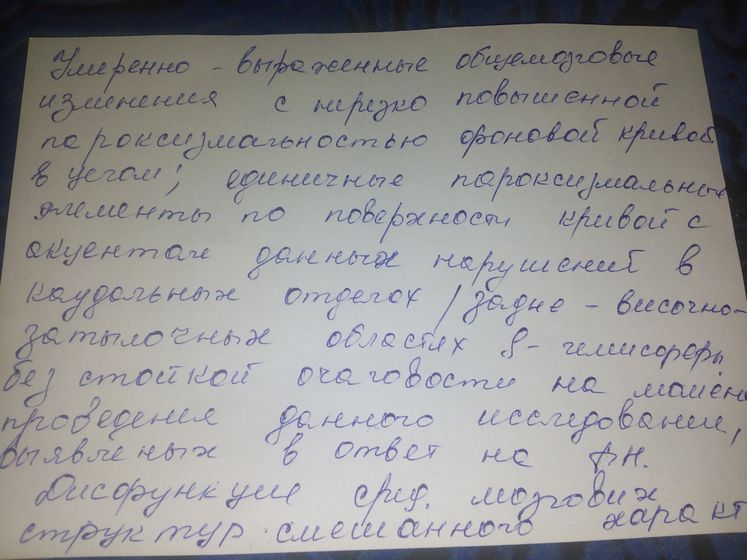 Умеренно - выраженные общемозговые
изменения с нерезко повышенной
пароксизмальностью фоновой кривой
в целом; единичные пароксизмальные
элементы по поверхности кривой с
акцентом данных нарушений в
каудальных отделах / задне - височно-
затылочных областях S - гемисферы
без стойкой очаговости на момен
проведения данного исследования,
выявленых в ответ на ФН.
Дисфункции сред. мозговых
структур смешанного характ